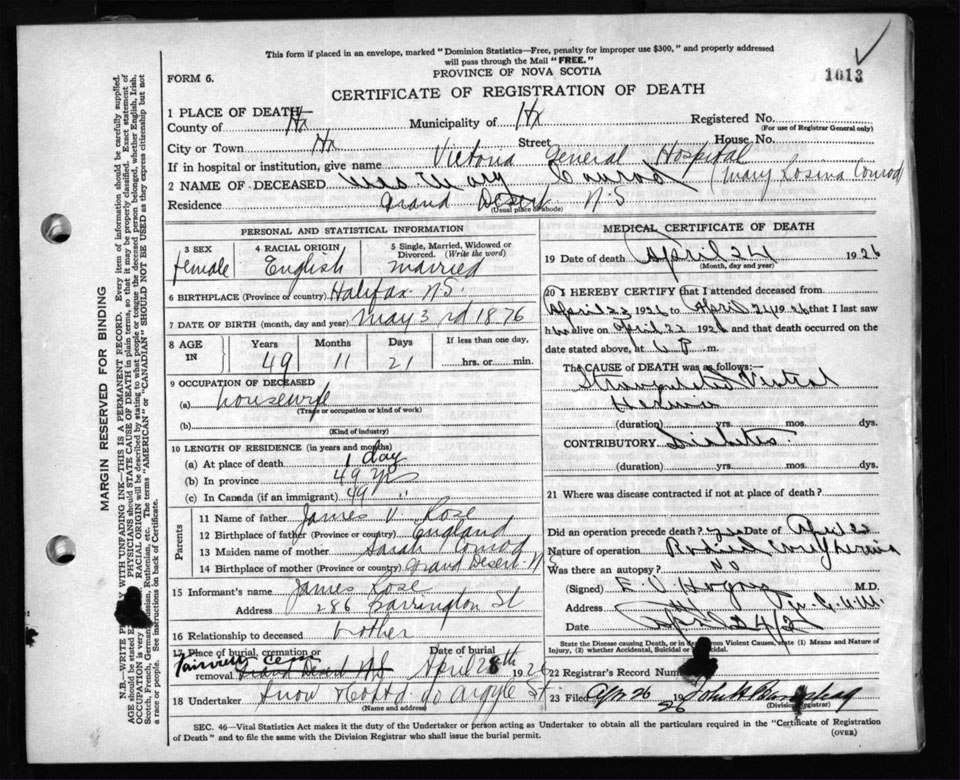 This form if placed in an envelope, marked "Dominion Statistics—Free, penalty for improper use $300," and properly addressed
will pass through the Mail "FREE."
1013
FORM 6.
PROVINCE OF NOVA SCOTIA
CERTIFICATE OF REGISTRATION OF DEATH
1 PLACE OF DEATH
County of Hx Municipality of Hx Registered No.
(For use of Registrar General only)
City or Town Hx Street House No.
If in hospital or institution, give name Victoria General Hospital
2 NAME OF DECEASED Mrs Mary Conrod (Mary Losina Conrod)
Residence Grand Desert N S
(Usual place of abode)
PERSONAL AND STATISTICAL INFORMATION
3 SEX 4 RACIAL ORIGIN 5 Single, Married, Widowed or Divorced. (Write the word)
female English married
6 BIRTHPLACE (Province or country) Halifax N.S.
7 DATE OF BIRTH (month, day and year) May 3rd 1876
8 AGE IN Years Months Days If less than one day,
49 11 21 hrs. or min.
9 OCCUPATION OF DECEASED
(a) housewife
(Trade or occupation or kind of work)
(b)
(Kind of industry)
10 LENGTH OF RESIDENCE (in years and months)
(a) At place of death 1 day
(b) In province 49 yrs
(c) In Canada (if an immigrant) 49 "
Parents
11 Name of father James V. Rose
12 Birthplace of father (Province or country) England
13 Maiden name of mother Sarah Conrod
14 Birthplace of mother (Province or country) Grand Desert N
15 Informant's name James Rose
Address 286 Barrington St
16 Relationship to deceased brother
17 Place of burial, cremation or removal Fairview Cem Grand Desert N.S. Date of burial April 28th 1926
18 Undertaker Snow &Co Ltd 90 Argyle St.
(Name and address)
MEDICAL CERTIFICATE OF DEATH
19 Date of death April 24 1926
(Month, day and year)
20 I HEREBY CERTIFY that I attended deceased from
April 23 1926 to April 24 1926 that I last saw
h alive on April 1926 and that death occurred on the
date stated above, at P m.
The CAUSE OF DEATH was as follows:—
Strangulated Ventral
Hernia
(duration) yrs. mos. dys.
CONTRIBUTORY Diabetes
(duration) yrs. mos. dys.
21 Where was disease contracted if not at place of death?
Did an operation precede death? yes Date of April
Nature of operation Hernia
Was there an autopsy? No
(Signed) E. V. Hogan M.D.
Address
Date April 24/26
State the Disease causing Death, or in from Violent Causes, state (1) Means and Nature of
Injury, (2) whether Accidental, Suicidal or
22 Registrar's Record Number
23 Filed Apr. 26 1926 John
(Division Registrar)
SEC. 46—Vital Statistics Act makes it the duty of the Undertaker or person acting as Undertaker to obtain all the particulars required in the "Certificate of Registration
of Death" and to file the same with the Division Registrar who shall issue the burial permit.
(OVER)
MARGIN RESERVED FOR BINDING
N.B.—WRITE WITH UNFADING INK—THIS IS A PERMANENT RECORD. Every item of information should be carefully supplied.
AGE should be stated PHYSICIANS should STATE CAUSE OF DEATH in plain terms, so that it may be properly classified. Exact statement of
OCCUPATION is very RACIAL ORIGIN will be described by stating to what people or tongue the deceased person belonged, whether English, Irish,
Scotch, French, German, Russian, Ruthenian, etc. The terms "AMERICAN" or "CANADIAN" SHOULD NOT BE USED as they express citizenship but not
a race or people. See instructions on back of Certificate.